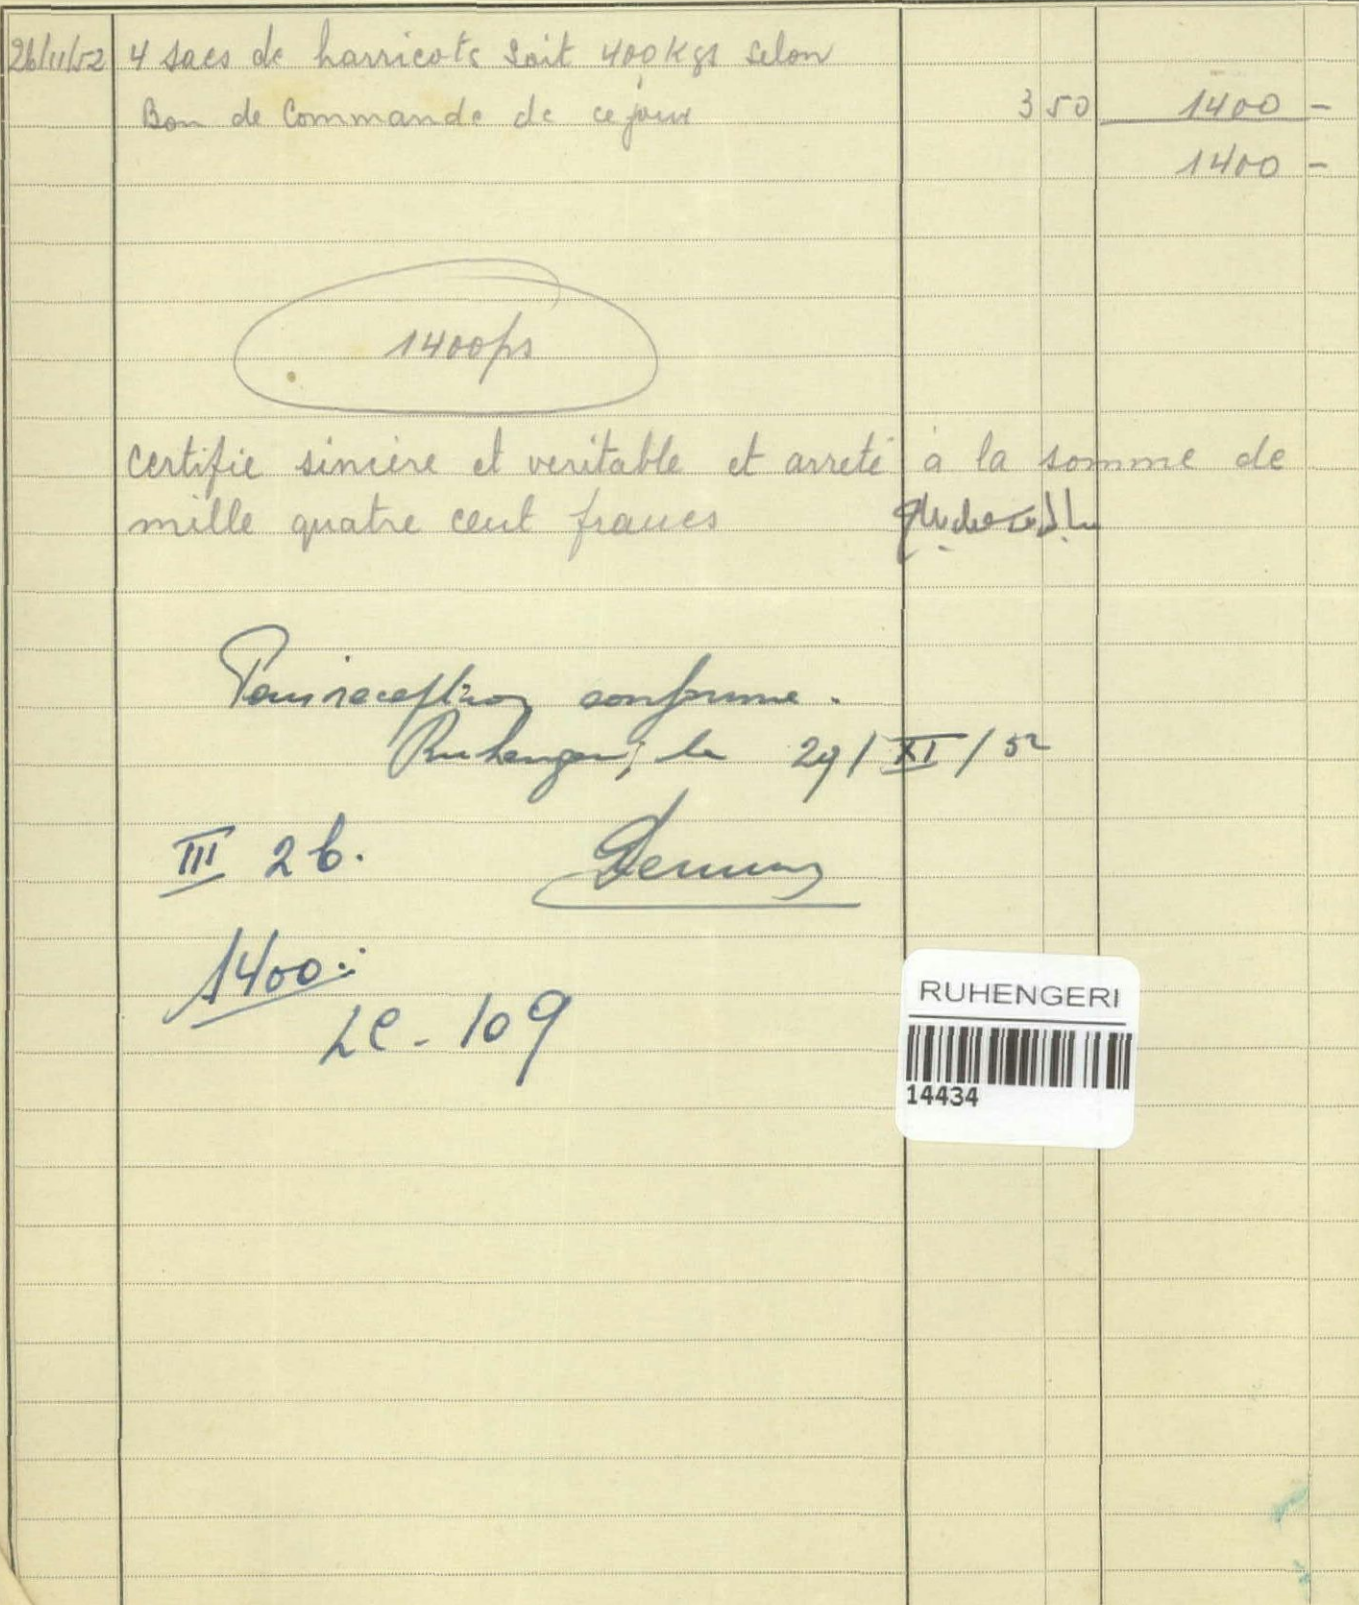 26/11/52 4 sacs de harricots soit 400 Kgs selon
Bon de Commande de ce jour 3 50 1400 -
1400 -
1400 frs
certifie sinière et veritable et arreté à la somme de
mille quatre cent francs
Pour réception conforme.
Ruhengeri, le 29/XI/52
III 2 b.
1400:-
LC - 109
RUHENGERI
14434